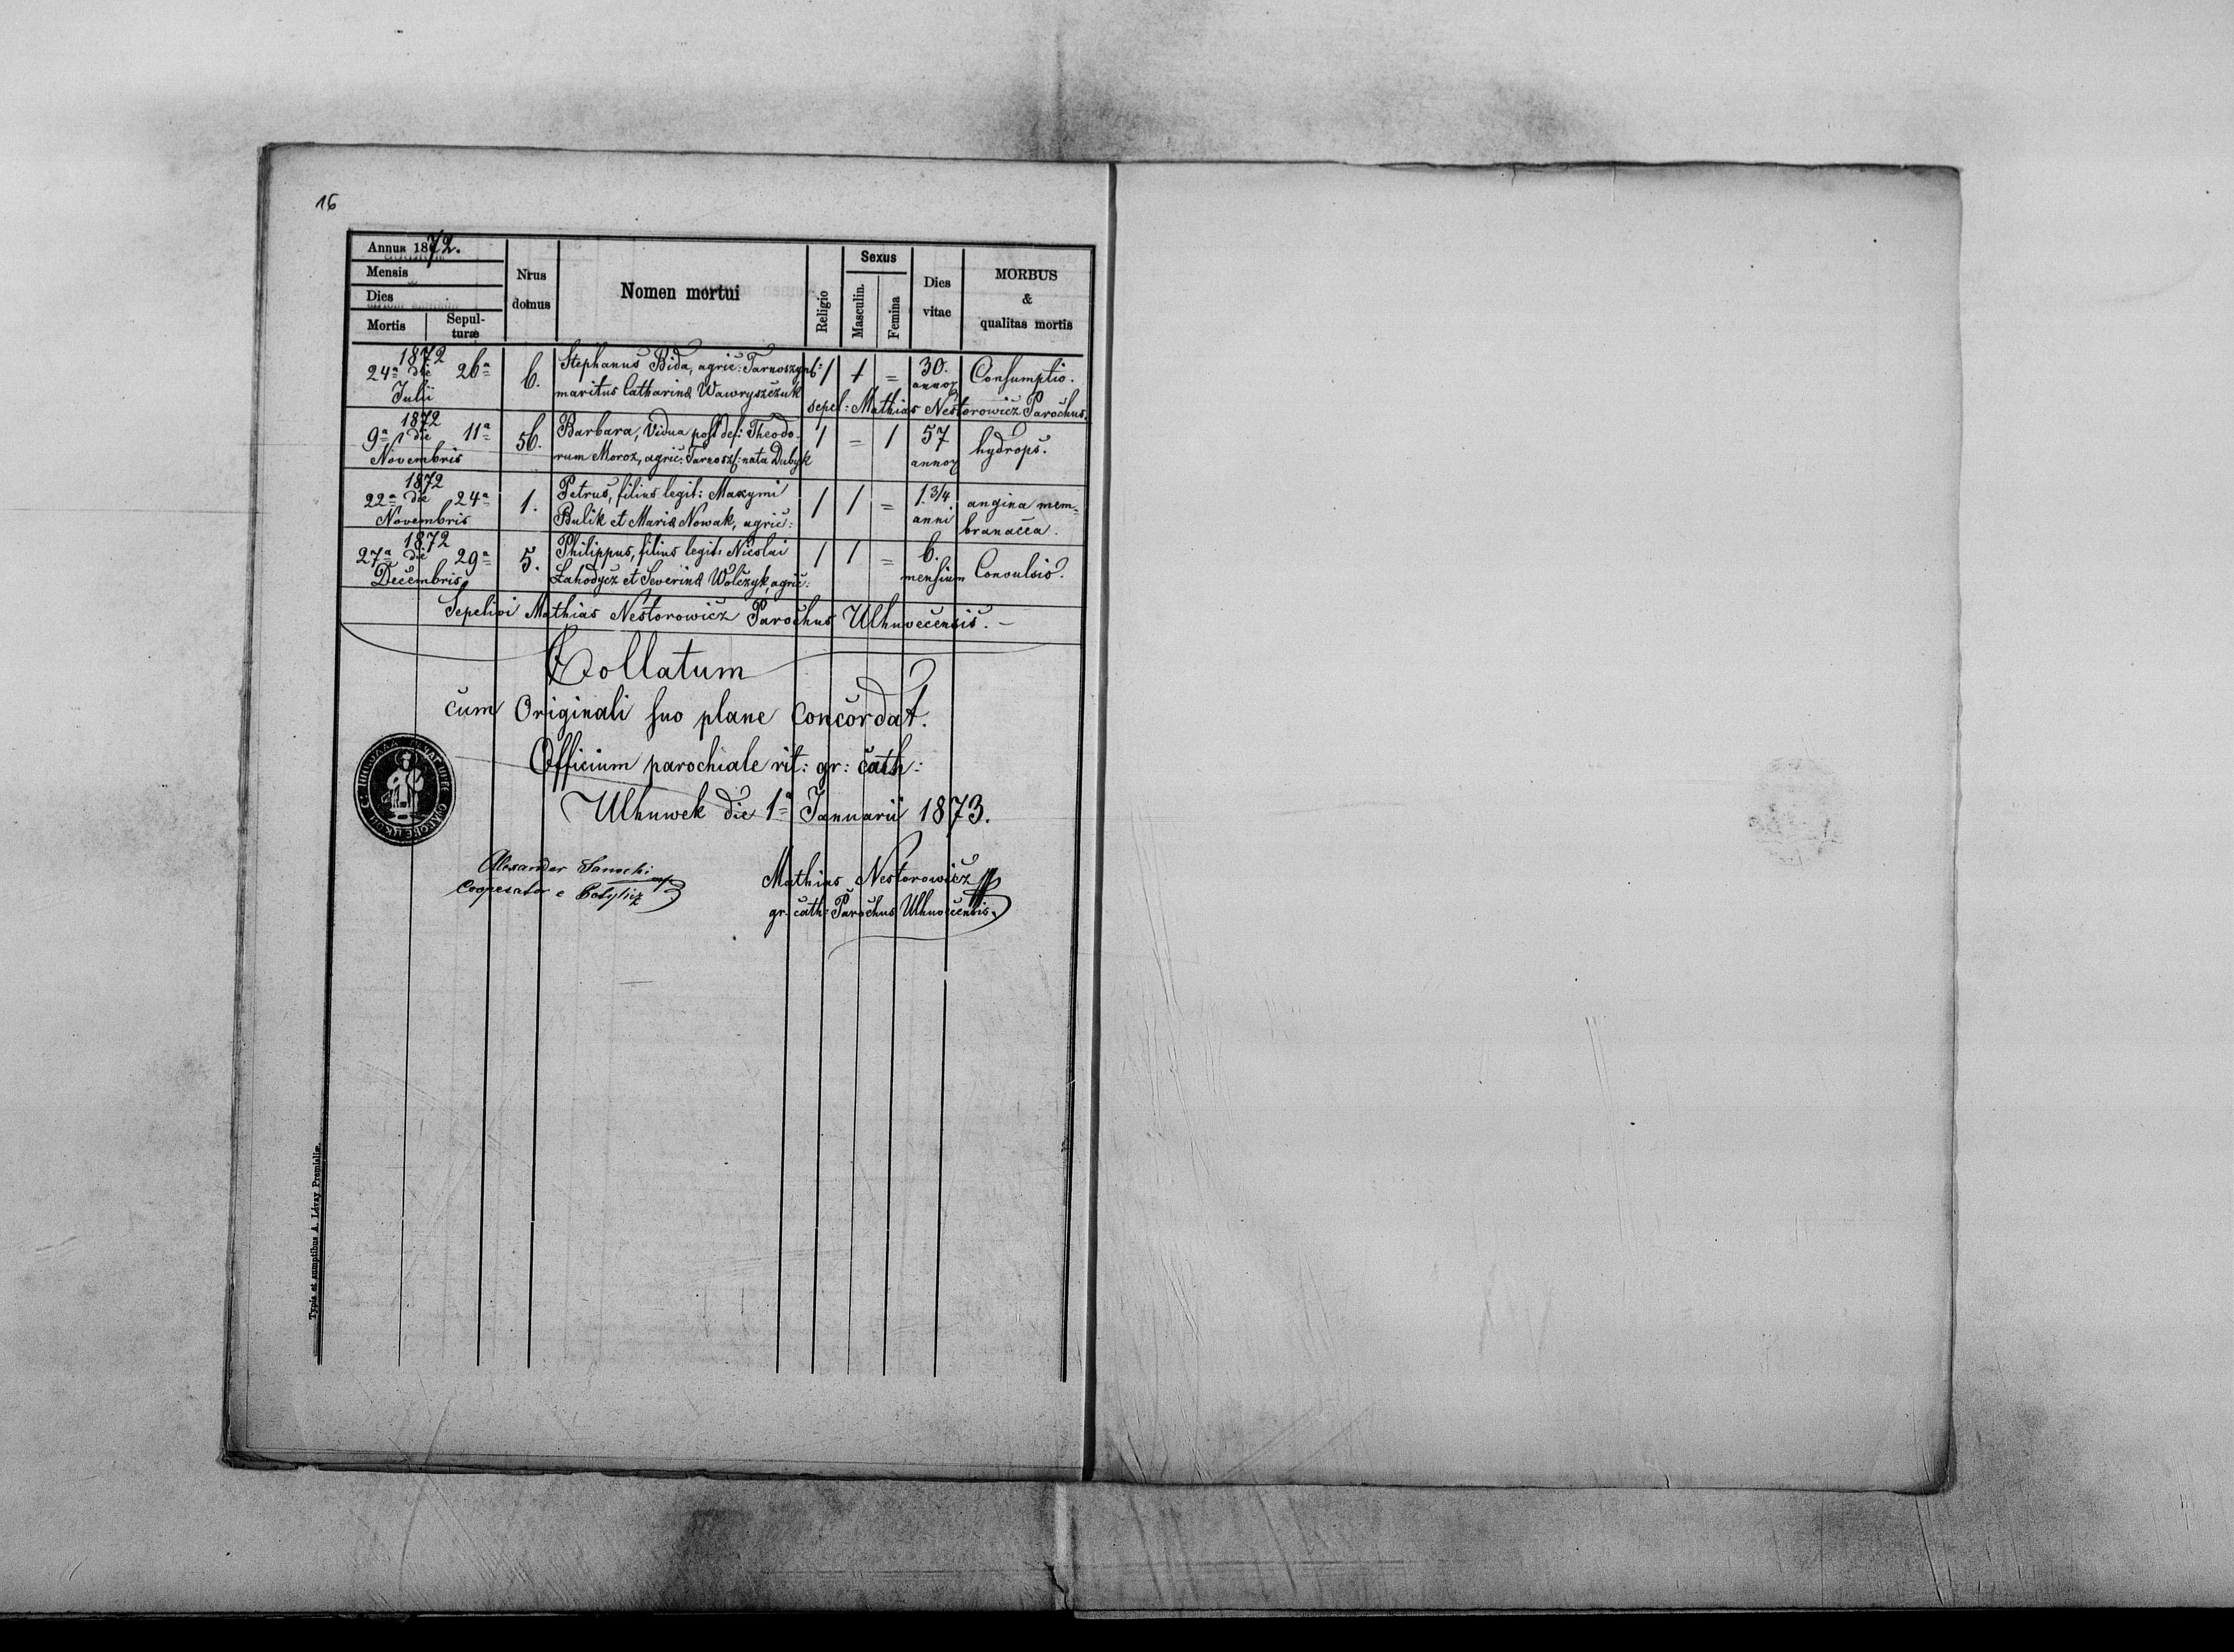 16
Annus 1872.
Mensis
Dies
Mortis
Sepul-
turæ
Nrus
domus
Nomen mortui
Religio
Sexus
Masculin.
Femina
Dies
vitae
MORBUS
&
qualitas mortis
1872
24ª die 26ª
Julii
6.
Stephanus Bida, agric: Tarnoszyns:
maritus Catharinæ Wawryszczuk
1 1 =
30.
annor
Consumptio.
sepel: Mathias Nestorowicz Parochus.
1872
9ª die 11ª
Novembris
56.
Barbara, Vidua post def: Theodo-
rum Moroz, agric: Tarnosz: nata Dubyk
1 = 1
57
annor
hydrops.
1872
22ª die 24ª
Novembris
1.
Petrus, filius legit: Maxymi
Bulik et Mariæ Nowak, agric:
1 1 =
1 3/4
anni
angina mem=
branacea.
1872
27ª die 29ª
Decembris
5.
Philippus, filius legit: Nicolai
Lahodycz et Severinæ Wolczyk, agric:
1 1 =
6.
mensium
Convulsio.
Sepelivi Mathias Nestorowicz Parochus Ulhuvecensis. —
Collatum
cum Originali suo plane Concordat.
Officium parochiale rit: gr: cath:
Ulhuwek die 1ª Januarii 1873.
Alexander
Cooperator e
Mathias Nestorowicz
gr. cath: Parochus Ulhuvecensis.
Typis et sumptibus A. Lévay Premisliæ.